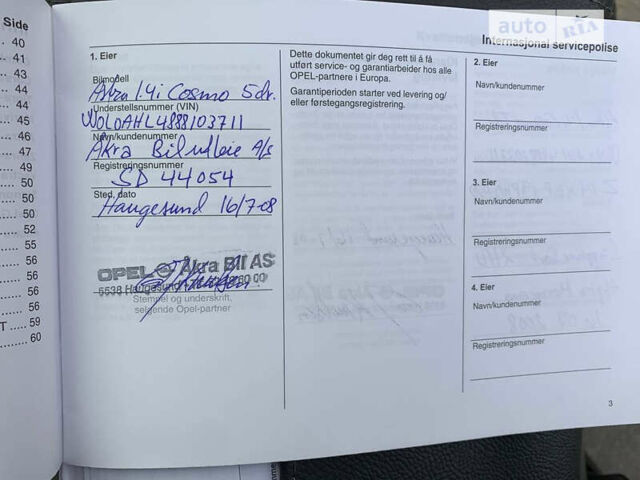 Side
40
41
43
44
44
45
46
47
49
50
50
50
52
55
56
56
56
56
T 59
60
auto RIA
Internasjonal servicepolise
1. Eier
Bilmodell
1.4i Cosmo 5dr.
Understellsnummer (VIN)
W0L0AHL4888103711
Navn/kundenummer
Åkra Bilutleie A/S
Registreringsnummer
SD 44054
Sted, dato
Haugesund 16/7-08
OPEL Åkra Bil AS
5538 Haugesund
Stempel og underskrift,
selgende Opel-partner
Dette dokumentet gir deg rett til å få
utført service- og garantiarbeider hos alle
OPEL-partnere i Europa.
Garantiperioden starter ved levering og/
eller førstegangsregistrering.
2. Eier
Navn/kundenummer
Registreringsnummer
3. Eier
Navn/kundenummer
Registreringsnummer
4. Eier
Navn/kundenummer
Registreringsnummer
3